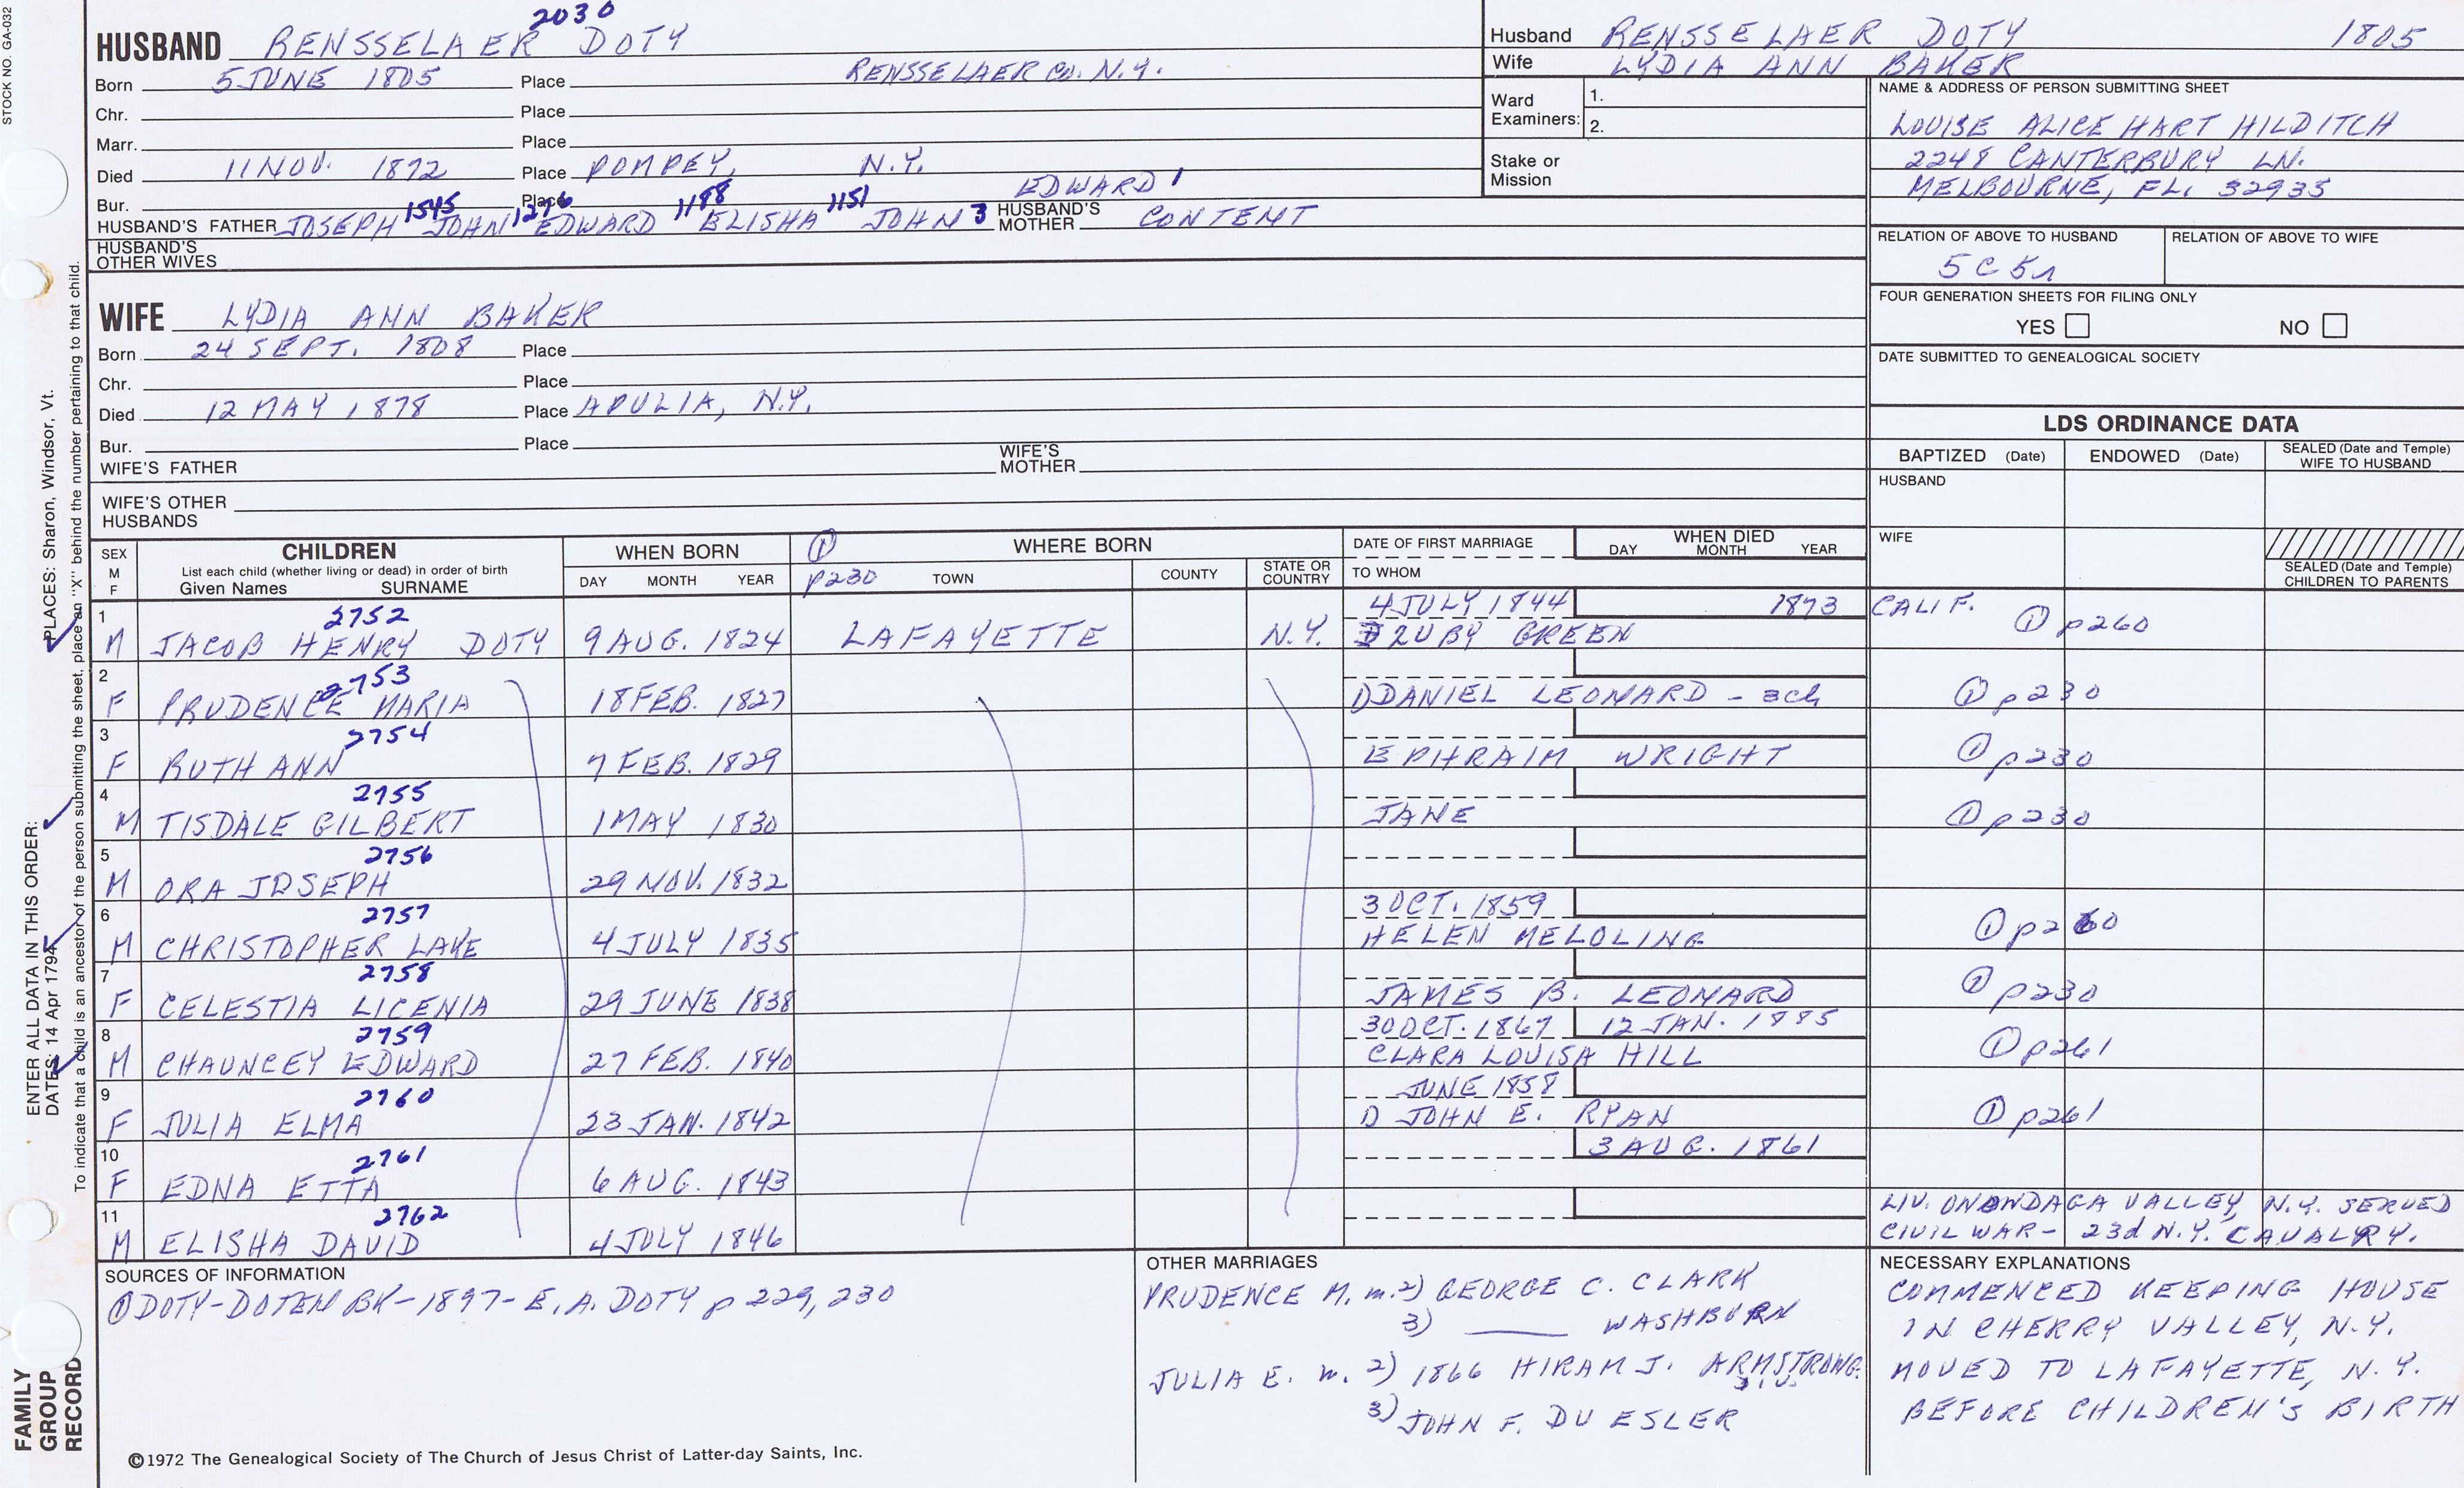 STOCK NO. GA-032
2030
HUSBAND RENSSELAER DOTY
Born 5 JUNE 1805 Place RENSSELAER CO. N.Y.
Chr. Place
Marr. Place
Died 11 NOV. 1872 Place POMPEY, N.Y.
Bur. Place EDWARD 1
1545 1276 1188 1151
HUSBAND'S FATHER JOSEPH JOHN EDWARD ELISHA JOHN 3 HUSBAND'S MOTHER CONTENT
HUSBAND'S OTHER WIVES
WIFE LYDIA ANN BAKER
Born 24 SEPT. 1808 Place
Chr. Place
Died 12 MAY 1878 Place APULIA, N.Y.
Bur. Place
WIFE'S FATHER WIFE'S MOTHER
WIFE'S OTHER HUSBANDS
Husband RENSSELAER DOTY 1805
Wife LYDIA ANN BAKER
Ward Examiners: 1.
2.
Stake or Mission
NAME & ADDRESS OF PERSON SUBMITTING SHEET
LOUISE ALICE HART HILDITCH
2248 CANTERBURY LN.
MELBOURNE, FL. 32935
RELATION OF ABOVE TO HUSBAND RELATION OF ABOVE TO WIFE
5C5r
FOUR GENERATION SHEETS FOR FILING ONLY
YES NO
DATE SUBMITTED TO GENEALOGICAL SOCIETY
LDS ORDINANCE DATA
BAPTIZED (Date) ENDOWED (Date) SEALED (Date and Temple) WIFE TO HUSBAND
HUSBAND
WIFE
SEALED (Date and Temple) CHILDREN TO PARENTS
SEX M F
CHILDREN
List each child (whether living or dead) in order of birth
Given Names SURNAME
WHEN BORN
DAY MONTH YEAR
① p230
WHERE BORN
TOWN COUNTY STATE OR COUNTRY
DATE OF FIRST MARRIAGE
TO WHOM
WHEN DIED
DAY MONTH YEAR
1 2752 4 JULY 1844 1873 CALIF. ① p260
M JACOB HENRY DOTY 9 AUG. 1824 LAFAYETTE N.Y. RUBY GREEN
2 2753
F PRUDENCE MARIA 18 FEB. 1827 DDANIEL LEONARD - ach ① p230
3 2754
F RUTH ANN 7 FEB. 1829 EPHRAIM WRIGHT ① p230
4 2755
M TISDALE GILBERT 1 MAY 1830 JANE ① p230
5 2756
M ORA JOSEPH 29 NOV. 1832
6 2757 3 OCT. 1859
M CHRISTOPHER LAKE 4 JULY 1835 HELEN MELOLING ① p260
7 2758
F CELESTIA LICENIA 29 JUNE 1838 JAMES B. LEONARD ① p230
8 2759 30 OCT. 1867 12 JAN. 1885
M CHAUNCEY EDWARD 27 FEB. 1840 CLARA LOUISA HILL ① p261
9 2760 JUNE 1858
F JULIA ELMA 23 JAN. 1842 D JOHN E. RYAN ① p261
10 2761 3 AUG. 1861
F EDNA ETTA 6 AUG. 1843
11 2762 LIV. ONONDAGA VALLEY, N.Y. SERVED
M ELISHA DAVID 4 JULY 1846 CIVIL WAR - 23d N.Y. CAVALRY.
SOURCES OF INFORMATION
① DOTY-DOTEN BK-1897-E.A. DOTY p 229, 230
©1972 The Genealogical Society of The Church of Jesus Christ of Latter-day Saints, Inc.
OTHER MARRIAGES
PRUDENCE M. m. 2) GEORGE C. CLARK
3) ____ WASHBURN
JULIA E. m. 2) 1866 HIRAM J. ARMSTRONG.
3) JOHN F. DUESLER
NECESSARY EXPLANATIONS
COMMENCED KEEPING HOUSE
IN CHERRY VALLEY, N.Y.
MOVED TO LAFAYETTE, N.Y.
BEFORE CHILDREN'S BIRTH
FAMILY GROUP RECORD
ENTER ALL DATA IN THIS ORDER:
DATES: 14 Apr 1794
PLACES: Sharon, Windsor, Vt.
To indicate that a child is an ancestor of the person submitting the sheet, place an "X" behind the number pertaining to that child.